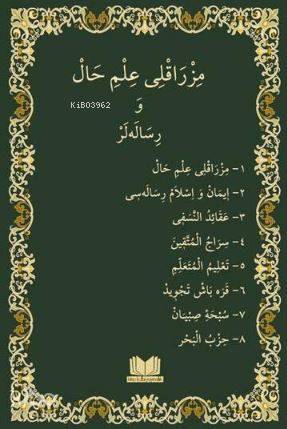 مِزْرَاقْلِى عِلْمِ حَالْ
KiB03962
وَ
رِسَالَەلَرْ
١- مِزْرَاقْلِى عِلْمِ حَالْ
٢- اِيمَانْ وَ اِسْلَامْ رِسَالَەسِى
٣- عَقَائِدُ النَّسَفِى
٤- سِرَاجُ الْمُتَّقِينَ
٥- تَعْلِيمُ الْمُتَعَلِّمِ
٦- قَرَە بَاشْ تَجْوِيدْ
٧- سُبْحَۀِ صِبْيَانْ
٨- حِزْبُ الْبَحْرِ